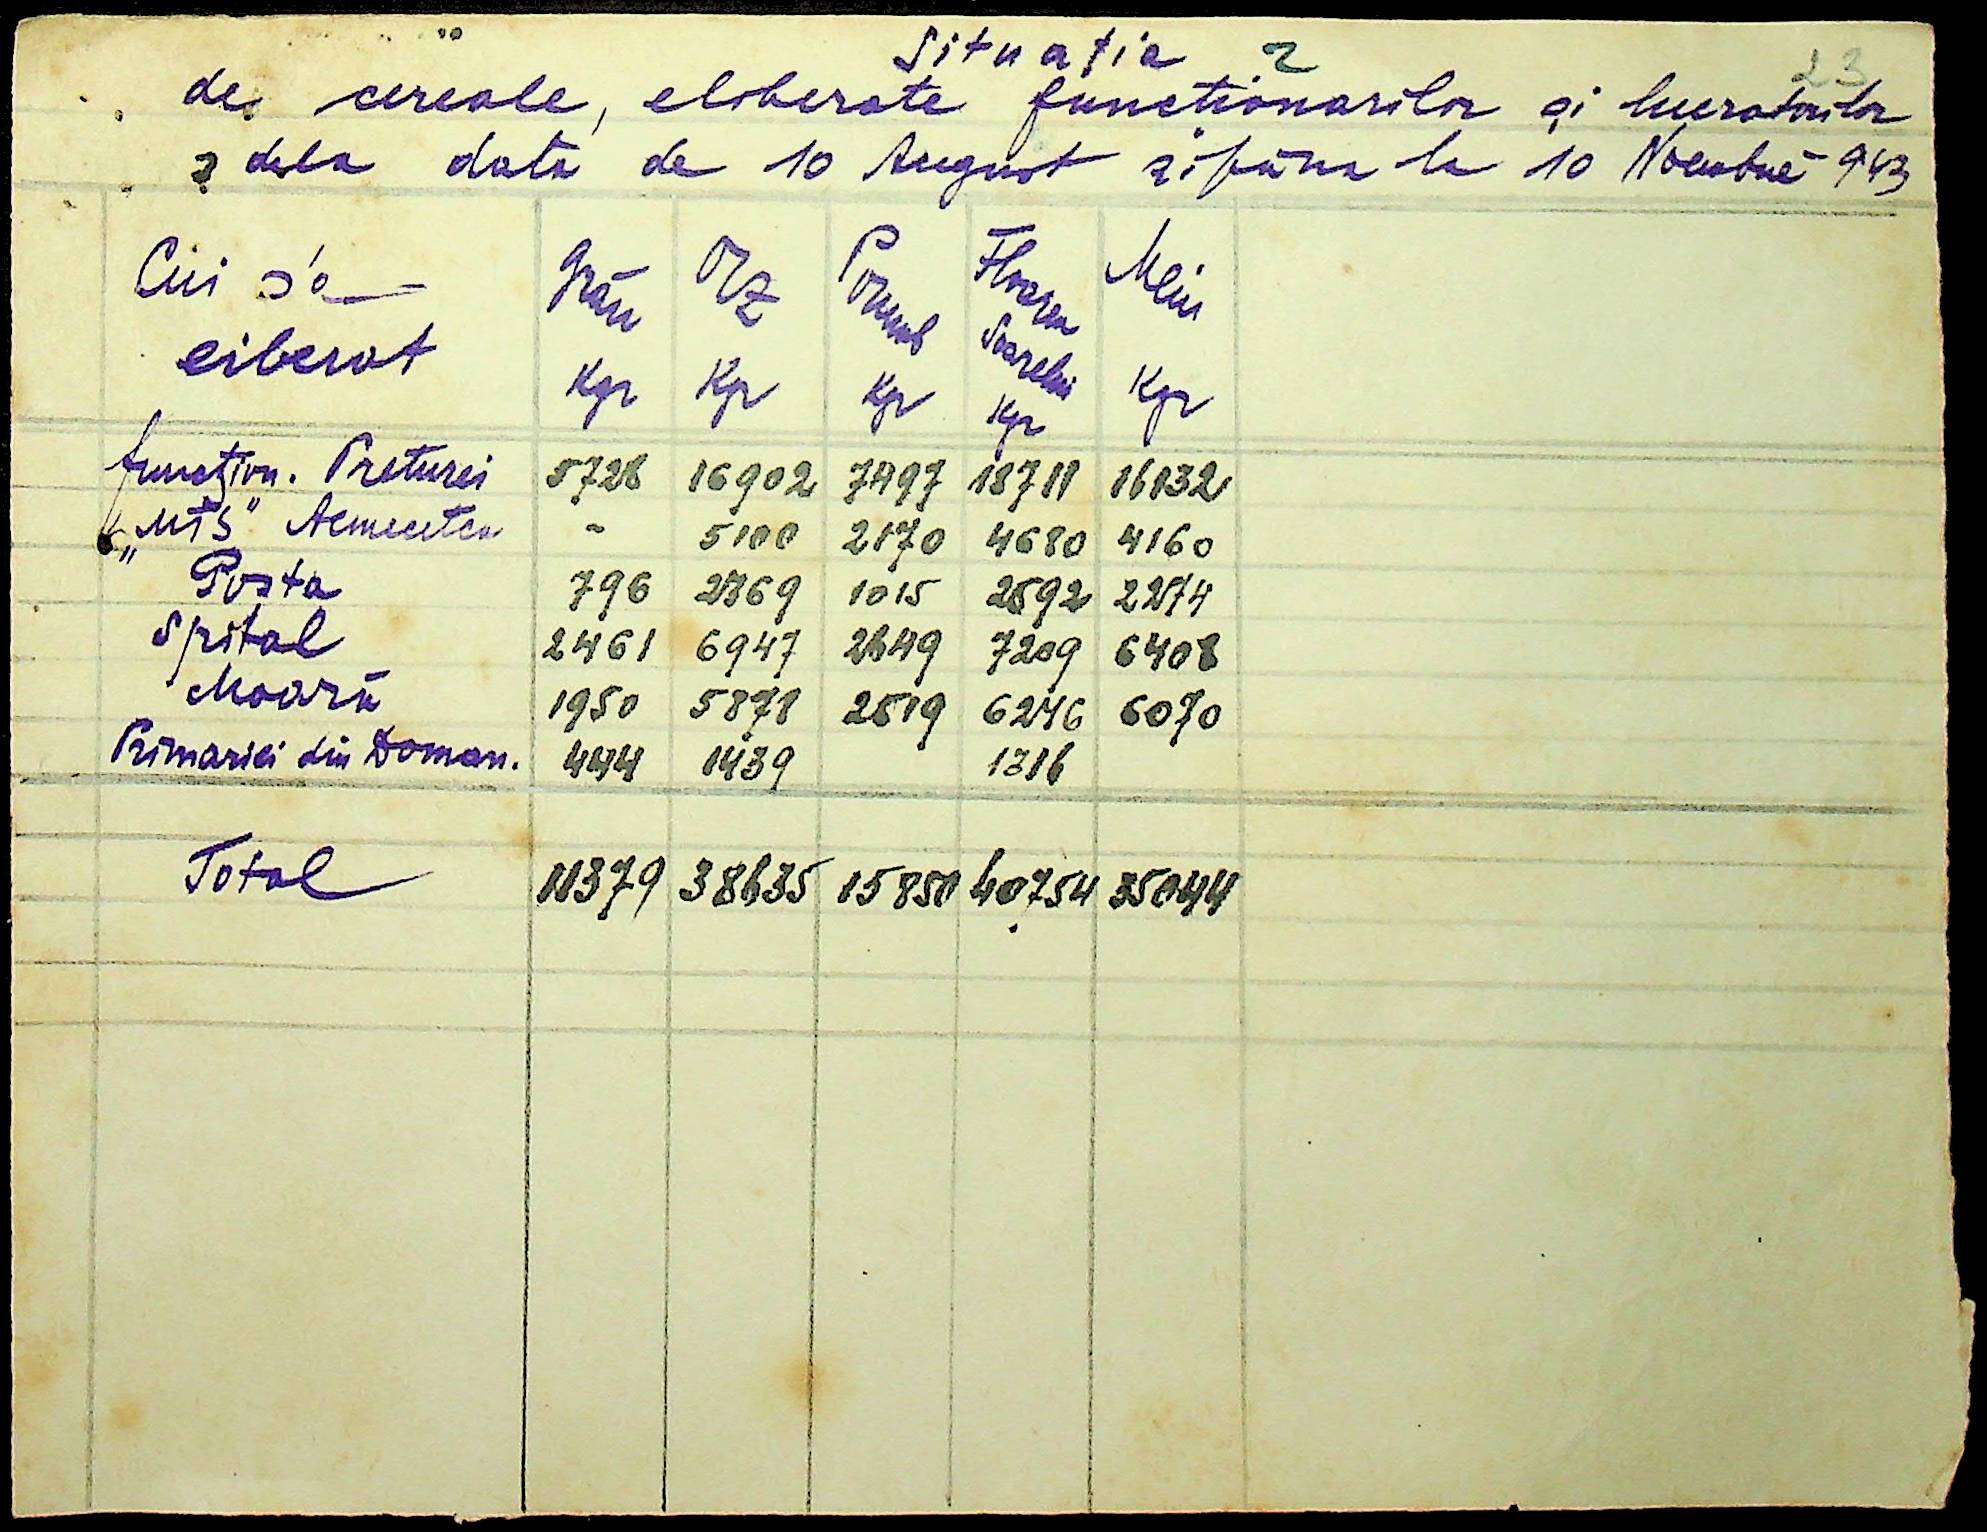 23
Situația
de cereale, eliberate funcționarilor și lucratorilor
dela data de 10 August și până la 10 Noembrie 943
Cui s'a eiberat Grâu Kgr Orz Kgr Porumb Kgr Floarea Soarelui Kgr Meiu Kgr
funcțion. Preturei 5728 16902 7497 18711 16132
„MTS" - 5100 2170 4680 4160
Posta 796 2369 1015 2592 2274
Spital 2461 6947 2649 7209 6408
Moară 1950 5878 2519 6246 6070
Primariei din Doman. 444 1439 1316
Total 11379 38635 15850 40754 35044